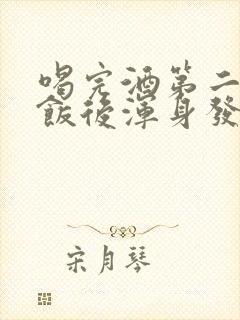 喝完酒第二
飯後渾身發
宋月琴